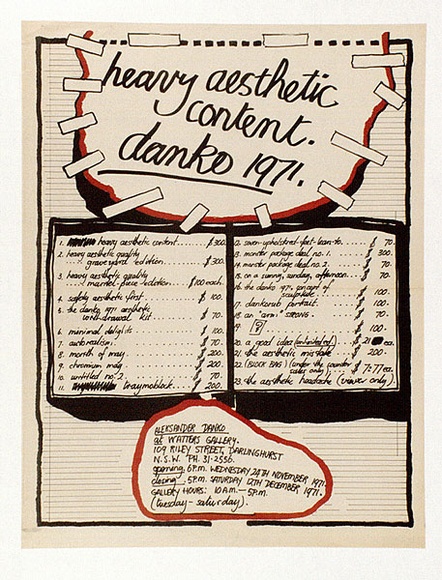 heavy aesthetic
content.
danko 1971.
1. heavy aesthetic content ..... $300.
2. heavy aesthetic quality
graveyard edition ..... $300.
3. heavy aesthetic quality
market piece edition ..... $100 each.
4. safety aesthetic first ..... $ 100.
5. the danko 1971 aesthetic
withdrawal kit ..... $ 70.
6. minimal delights ..... $ 100.
7. ..... $ 70.
8. month of may ..... $ 200.
9. chromium mdg ..... $ 200.
10. untitled no. 2. ..... $ 70.
11. traymoblock. ..... $ 200.
12. ..... $ 70.
13. monster package deal no. 1. ..... $ 300.
14. monster package deal no. 2. ..... $ 70.
15. on a sunny, sunday, afternoon. ..... $ 70.
16. the danko 1971. version of
sculpture ..... $ 100.
17. portrait. ..... $ 100.
18. an "arm" strong ..... $ 70.
19. [?] ..... $ 100.
20. a good idea ..... $ 70.
21. the aesthetic mistake ..... $ 200.
22. (BLOCK BAG) (under the counter
sales only) ..... $ 7.77 ea.
23. the aesthetic headache (viewer only).
ALEKSANDER DANKO
at WATTERS GALLERY.
109 RILEY STREET, DARLINGHURST
N.S.W. PH. 31-2556.
opening 6P.M. WEDNESDAY 24TH NOVEMBER 1971.
closing 5P.M. SATURDAY 12TH DECEMBER 1971.
GALLERY HOURS: 10AM – 5PM.
(tuesday – saturday).